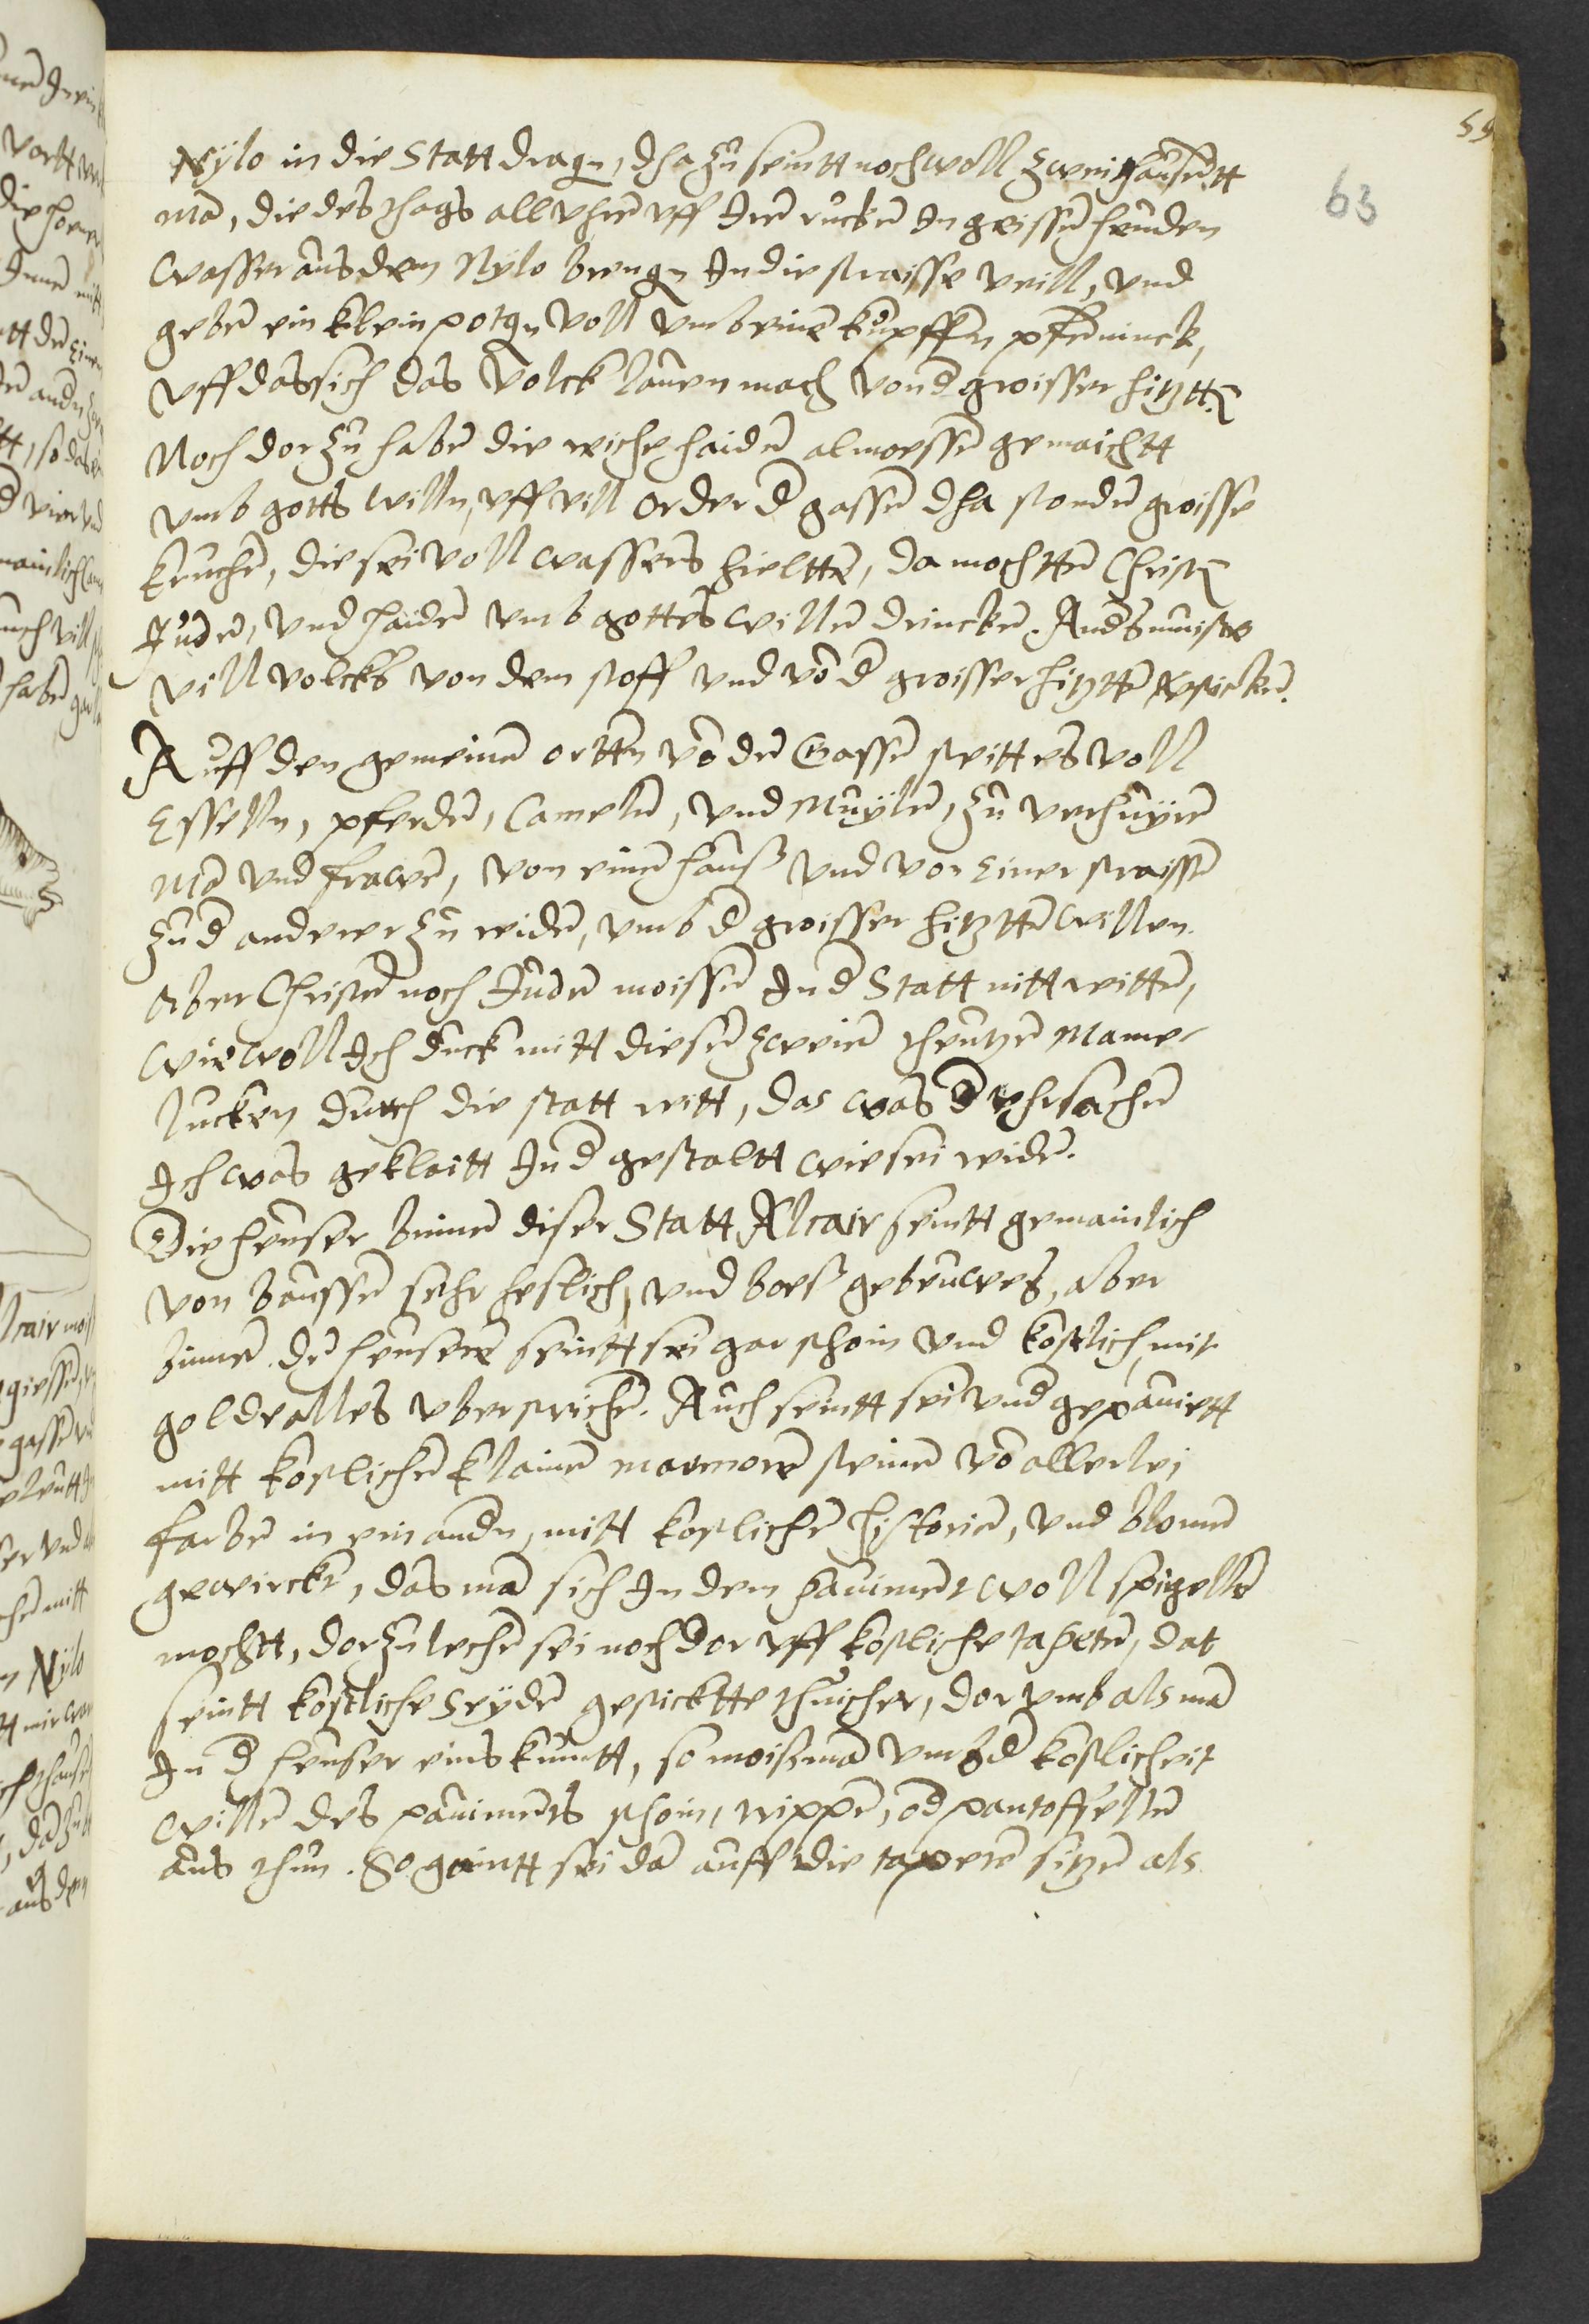 59
63
Nÿlo in die Statt dragn, dha zu seintt noch woll zweithausentt
ma, die des thags all vhre vff Jre rucke In geissen heuden
wasser aus dem Nÿlo brengn In die straisse veill, vnd
gebe ein klein potgn voll vmb eine kupffen pfenninck,
vff das sich das volck lauen mach von d groisser hitzt
Noch dor zu habe die riche haide almoesse gemaichtt
vmb gotts willn, vff vill order d gasse dha stonde groisse
kruche, die sei voll wassers hieltte, da mochtte Christ
Jude, vnd haide vmb gottes wille drincke. Anders muiste
vill volcks von dem stoff vnd vo d groisser hitztte sticke.
Auff den gemeine ortten vo de Gasse steitt es voll
Esselln, pferde, Camele, vnd Muÿle, zu verhuÿre
Ma vnd frawe, von eine hauß vnd vor einer straisse
zu d anderer zu ride, vmb d groisser hitztte willen.
Aber Christe noch Jude moisse In d Statt nitt ritte,
wie woll Ich duck mitt diese zweie theutze Mame
lucken durch die statt ritt, das was d vhrsache
Ich was geklaitt In d gestaltt wie sei ride.
Die heuser binne diser Statt Alcair seintt gemainlich
von baussen sehr heslich, vnd boeß gebeuwes, aber
binne de heusere seintt sei gar schoin vnd kostlich mit
golde alles vberstriche. Auch seintt sei vnd gepauiertt
mitt kostliche klaine marmore steine vo allerlei
farbe in ein andn, mitt kostliche historie, vnd blome
gewirckt, das ma sich In dem pauiment woll spigelle
mochtt, dor zu leche sei noch dor vff kostliche tapete, dat
seintt kostliche seÿde gesticktte thuicher, dor vmb als ma
In d heuser eins kumtt, so moisma vmb d kostlicheit
wille des pauiments schoin, trippe, od pantoffelle
aus thun. So gaintt sei da auff die tapete sitze als